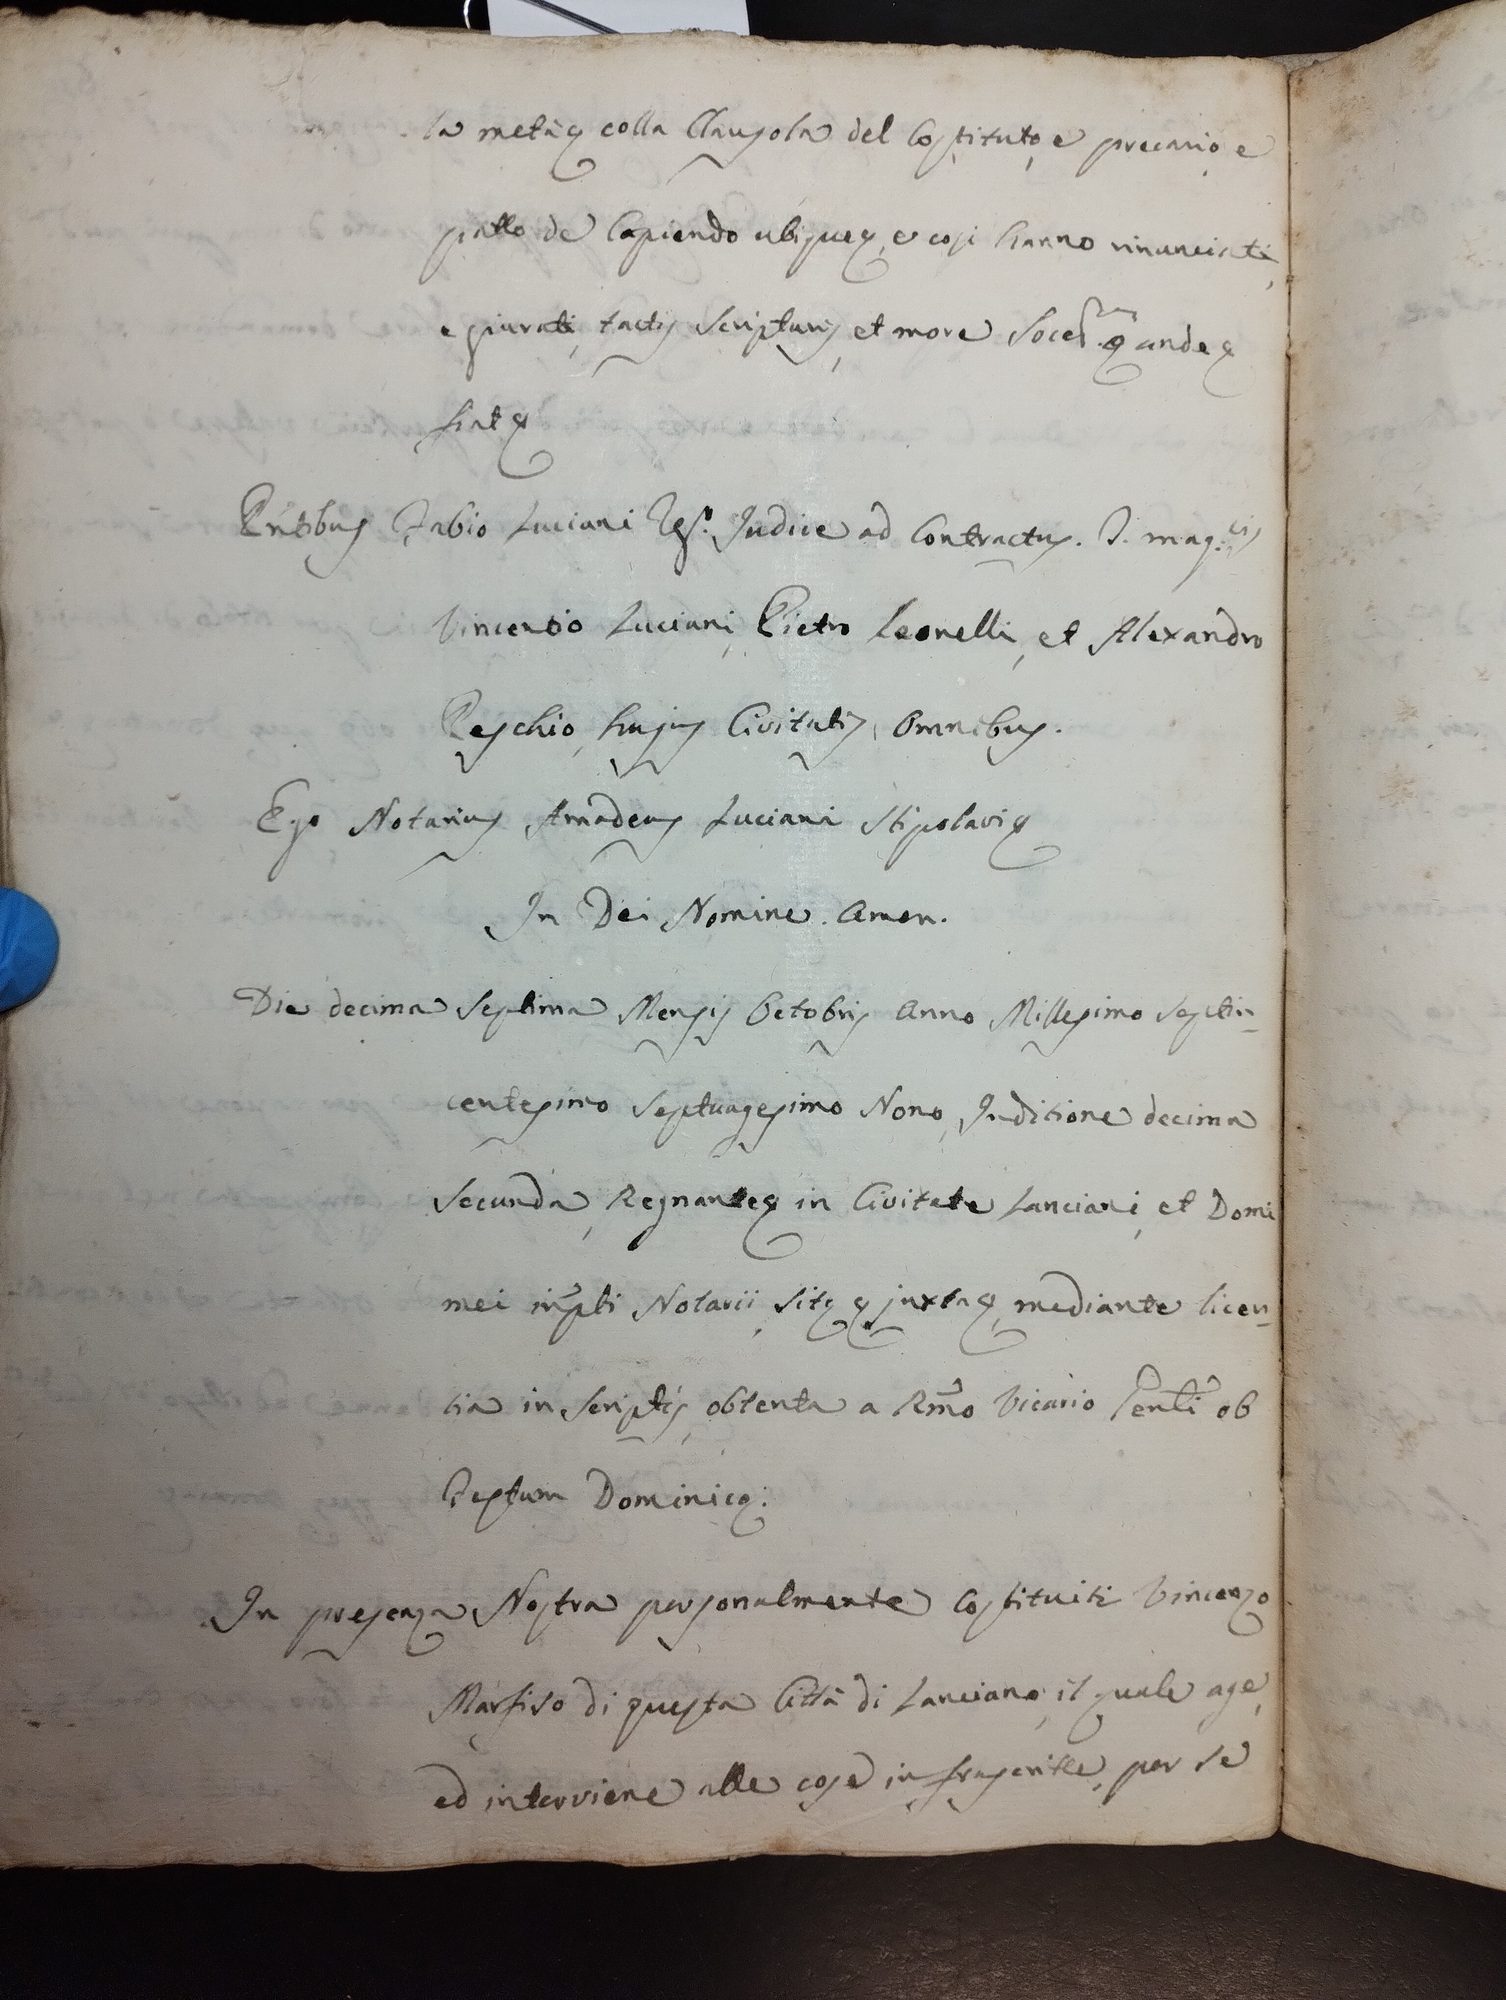 la metà & colla Clausola del Costituto, e precario, e
patto de Capiendo ubique &, e così hanno rinunciati,
e giurati, tactis Scripturis, et more Sacerd. & unde &
fiat &
Pntibus Fabio Luciani Rg.º Judice ad Contractus. T. mag.cis
Vincentio Luciani, Pietro Leonelli, et Alexandro
Peschio, hujus Civitatis, Omnibus.
Ego Notarius Amadeus Luciani Stipolavi &
In Dei Nomine. Amen.
Die decima Septima Mensis Octobris Anno Millesimo Septin-
centesimo Septuagesimo Nono, Inditione decima
Secunda, Regnante & in Civitate Lanciani, et Domi
mei inpti Notarii, sit & & juxta &, mediante licen-
tia in Scriptis, obtenta a Rmo Vicario Genli ob
Festum Dominic &:
In presenza Nostra personalmente Costituiti Vincenzo
Marfiso di questa Città di Lanciano, il quale age,
ed interviene alle cose infrascritte, per se